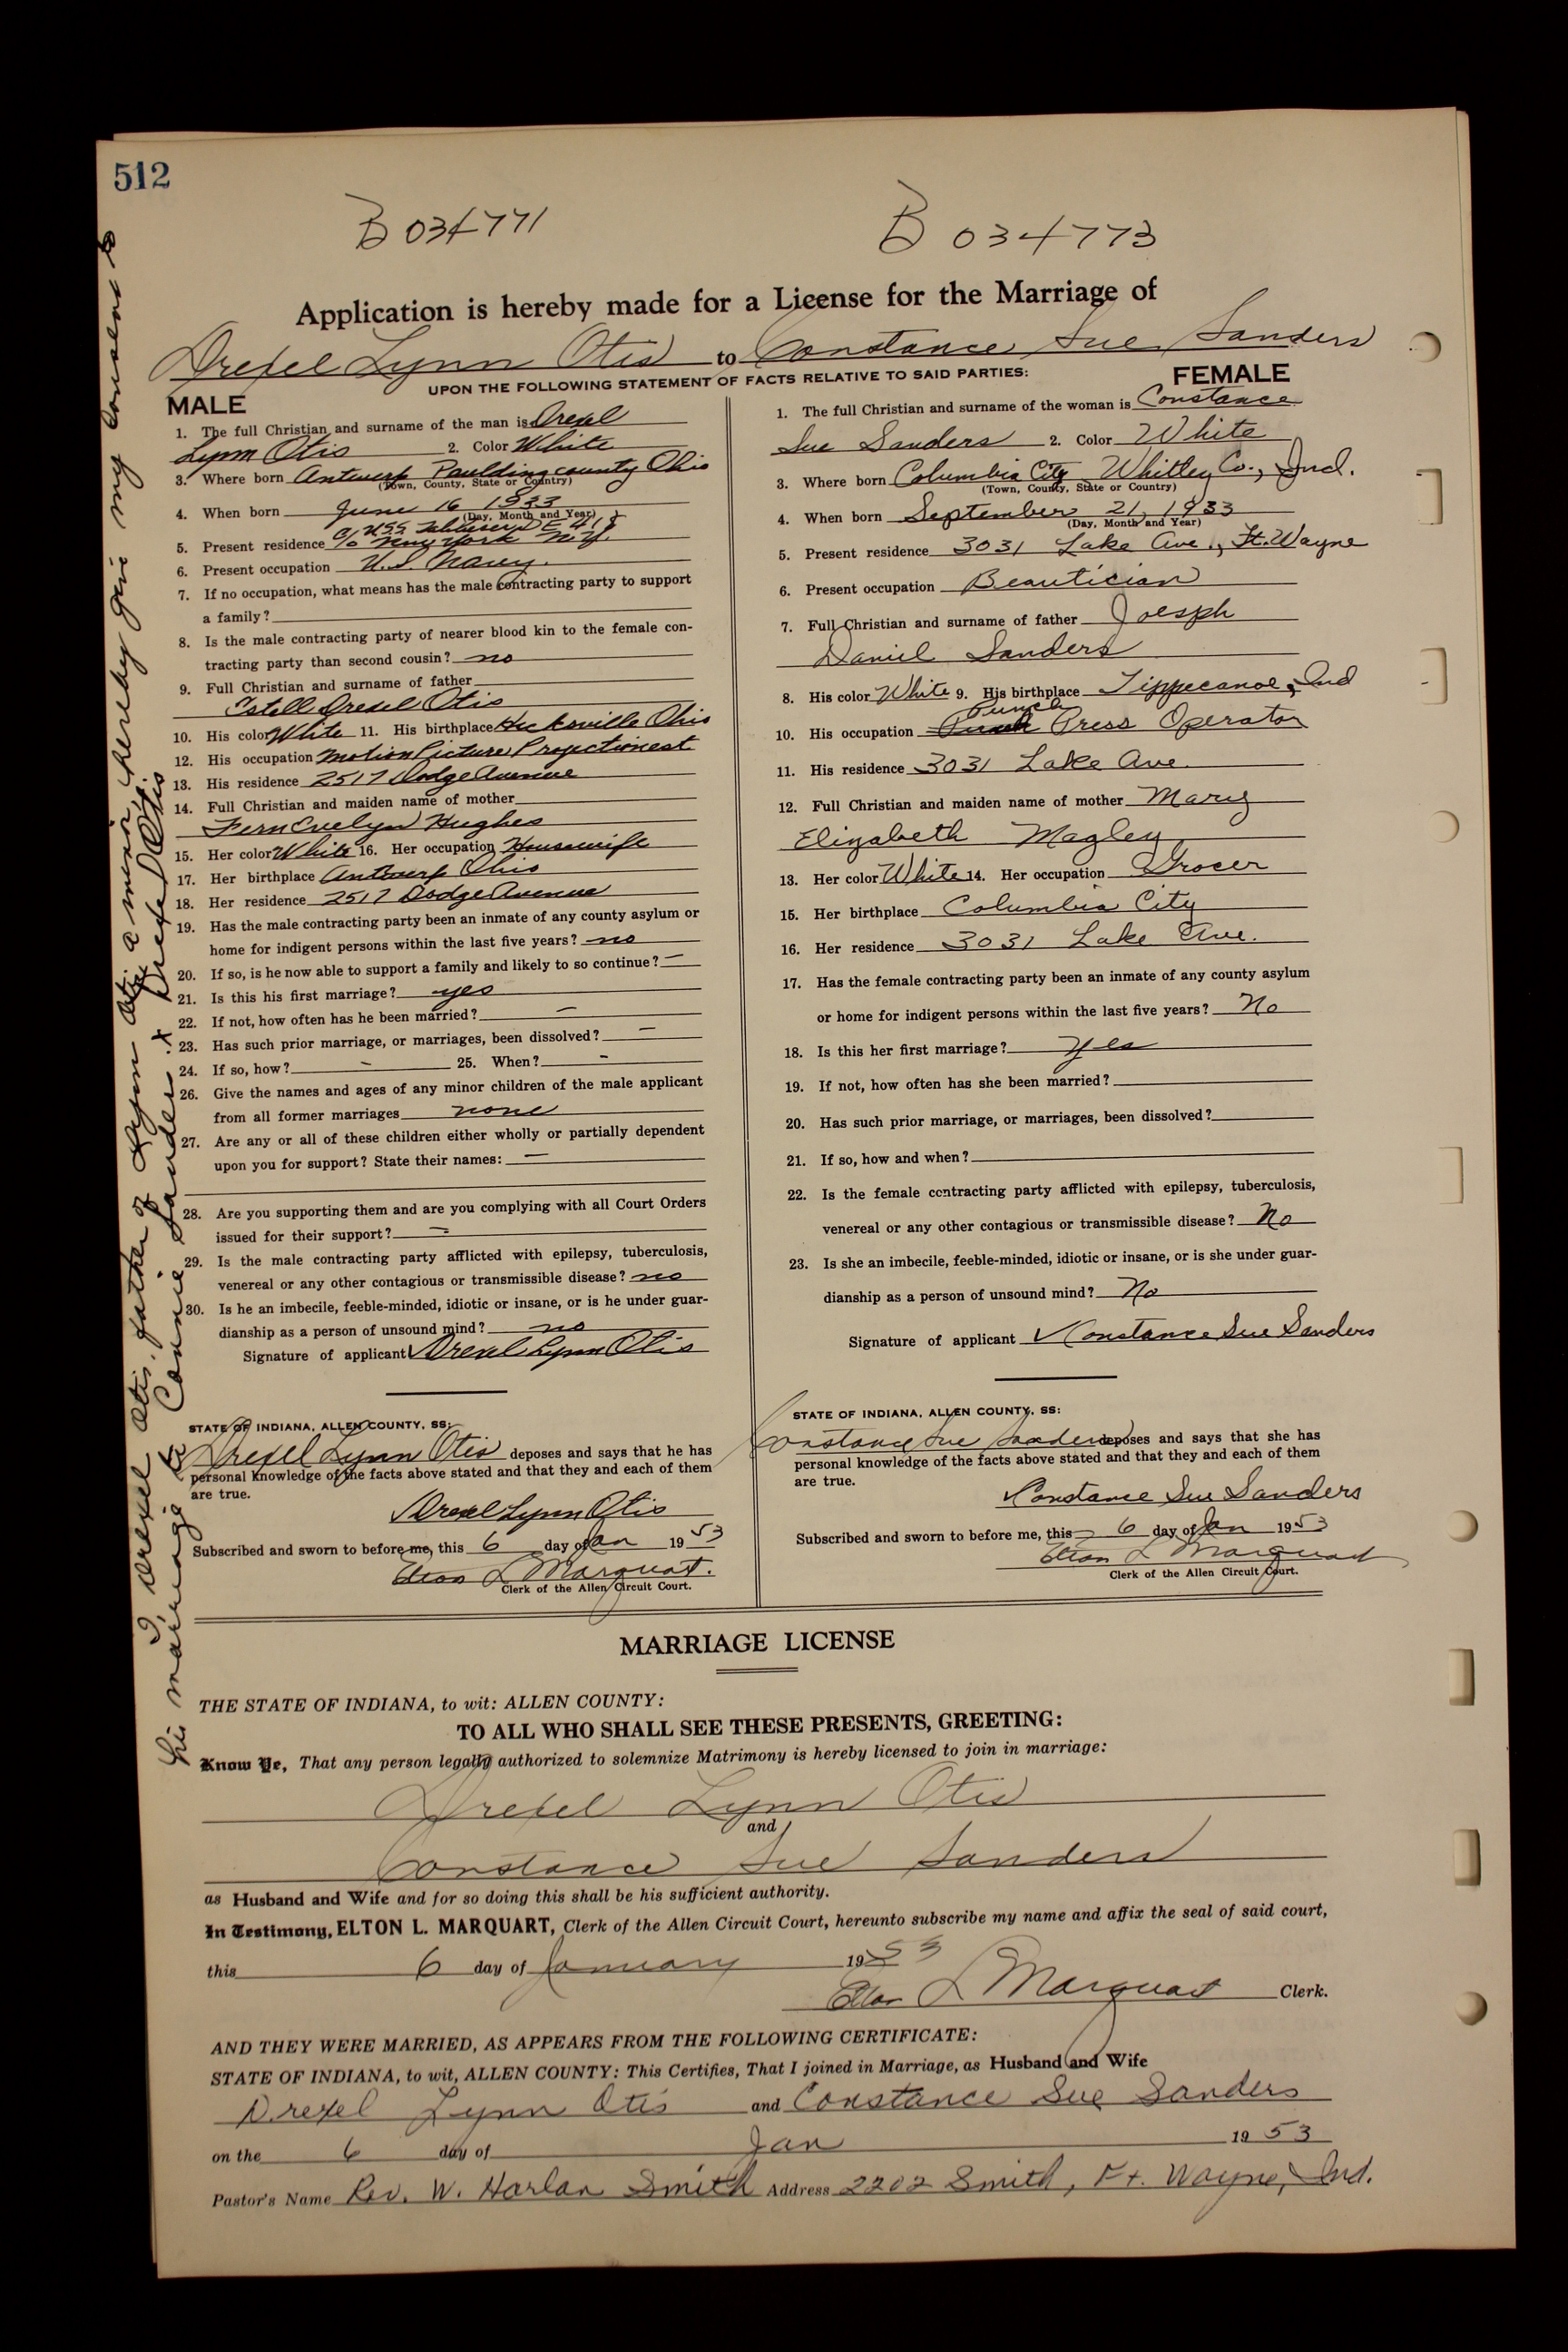 512
B 034771
B 034773
Application is hereby made for a License for the Marriage of
Drexel Lynn Otis to Constance Sue Sanders
UPON THE FOLLOWING STATEMENT OF FACTS RELATIVE TO SAID PARTIES:
MALE
1. The full Christian and surname of the man is Drexel
Lynn Otis 2. Color White
3. Where born Antwerp Paulding county Ohio
(Town, County, State or Country)
4. When born June 16 1933
(Day, Month and Year)
c/o USS DE 419
5. Present residence New York N.Y.
6. Present occupation U.S. Navy.
7. If no occupation, what means has the male contracting party to support
a family?
8. Is the male contracting party of nearer blood kin to the female con-
tracting party than second cousin? no
9. Full Christian and surname of father
Estell Drexel Otis
10. His color White 11. His birthplace Hicksville Ohio
12. His occupation Motion Picture Projectionest
13. His residence 2517 Dodge Avenue
14. Full Christian and maiden name of mother
Fern Evelyn Hughes
15. Her color White 16. Her occupation Housewife
17. Her birthplace Antwerp Ohio
18. Her residence 2517 Dodge Avenue
19. Has the male contracting party been an inmate of any county asylum or
home for indigent persons within the last five years? no
20. If so, is he now able to support a family and likely to so continue? —
21. Is this his first marriage? yes
22. If not, how often has he been married? —
23. Has such prior marriage, or marriages, been dissolved? —
24. If so, how? - 25. When? -
26. Give the names and ages of any minor children of the male applicant
from all former marriages none
27. Are any or all of these children either wholly or partially dependent
upon you for support? State their names: —
28. Are you supporting them and are you complying with all Court Orders
issued for their support? —
29. Is the male contracting party afflicted with epilepsy, tuberculosis,
venereal or any other contagious or transmissible disease? no
30. Is he an imbecile, feeble-minded, idiotic or insane, or is he under guar-
dianship as a person of unsound mind? no
Signature of applicant Drexel Lynn Otis
STATE OF INDIANA, ALLEN COUNTY, SS:
Drexel Lynn Otis deposes and says that he has
personal knowledge of the facts above stated and that they and each of them
are true.
Drexel Lynn Otis
Subscribed and sworn to before me, this 6 day of Jan 1953
Elton L Marquart.
Clerk of the Allen Circuit Court.
FEMALE
1. The full Christian and surname of the woman is Constance
Sue Sanders 2. Color White
3. Where born Columbia City Whitley Co., Ind.
(Town, County, State or Country)
4. When born September 21, 1933
(Day, Month and Year)
5. Present residence 3031 Lake Ave., Ft. Wayne
6. Present occupation Beautician
7. Full Christian and surname of father Joesph
Daniel Sanders
8. His color White 9. His birthplace Tippecanoe, Ind
10. His occupation Punch Press Operator
11. His residence 3031 Lake Ave.
12. Full Christian and maiden name of mother Mary
Elizabeth Magley
13. Her color White 14. Her occupation Grocer
15. Her birthplace Columbia City
16. Her residence 3031 Lake Ave.
17. Has the female contracting party been an inmate of any county asylum
or home for indigent persons within the last five years? No
18. Is this her first marriage? yes
19. If not, how often has she been married?
20. Has such prior marriage, or marriages, been dissolved?
21. If so, how and when?
22. Is the female contracting party afflicted with epilepsy, tuberculosis,
venereal or any other contagious or transmissible disease? No
23. Is she an imbecile, feeble-minded, idiotic or insane, or is she under guar-
dianship as a person of unsound mind? No
Signature of applicant Constance Sue Sanders
STATE OF INDIANA, ALLEN COUNTY, SS:
Constance Sue Sanders deposes and says that she has
personal knowledge of the facts above stated and that they and each of them
are true.
Constance Sue Sanders
Subscribed and sworn to before me, this 6 day of Jan 1953
Elton L Marquart
Clerk of the Allen Circuit Court.
I Drexel Otis, father of Lynn Otis a minor, hereby give my consent to
his marriage to Connie Sanders. x Drexel D Otis
MARRIAGE LICENSE
THE STATE OF INDIANA, to wit: ALLEN COUNTY:
TO ALL WHO SHALL SEE THESE PRESENTS, GREETING:
Know Ye, That any person legally authorized to solemnize Matrimony is hereby licensed to join in marriage:
Drexel Lynn Otis
and
Constance Sue Sanders
as Husband and Wife and for so doing this shall be his sufficient authority.
In Testimony, ELTON L. MARQUART, Clerk of the Allen Circuit Court, hereunto subscribe my name and affix the seal of said court,
this 6 day of January 1953
Elton L Marquart Clerk.
AND THEY WERE MARRIED, AS APPEARS FROM THE FOLLOWING CERTIFICATE:
STATE OF INDIANA, to wit, ALLEN COUNTY: This Certifies, That I joined in Marriage, as Husband and Wife
Drexel Lynn Otis and Constance Sue Sanders
on the 6 day of Jan 1953
Pastor's Name Rev. W. Harlan Smith Address 2202 Smith, Ft. Wayne, Ind.